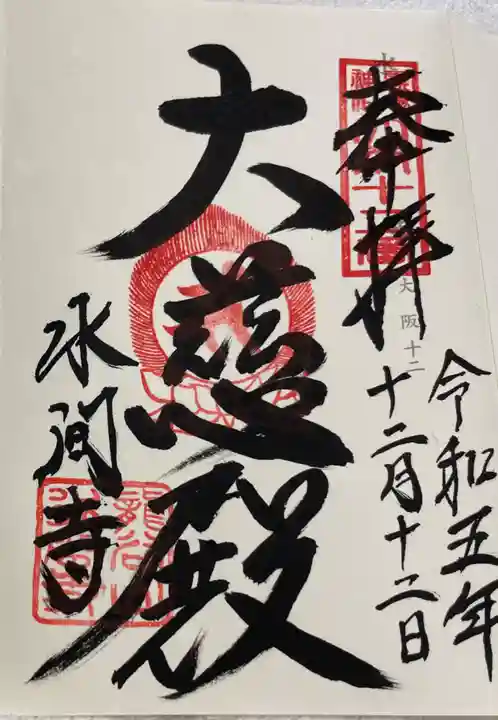 奉拝
大阪十二
令和五年
十二月十二日
大慈殿
水間寺